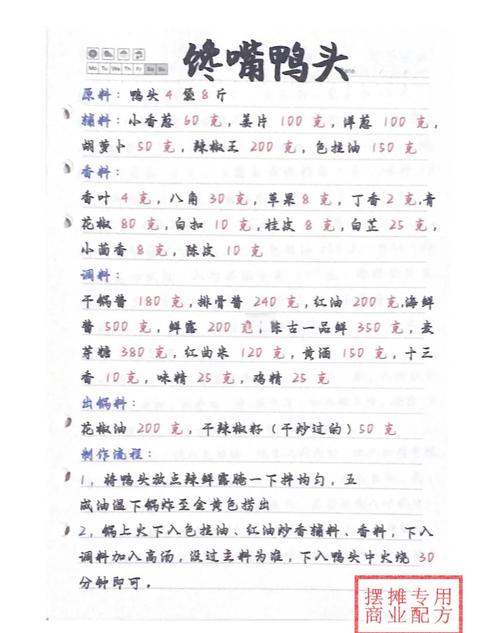 馋嘴鸭头
Mo Tu We Th Fr Sa Su
原料：鸭头4袋8斤
辅料：小香葱60克，姜片100克，洋葱100克，
胡萝卜50克，辣椒王200克，色拉油150克
香料：
香叶4克，八角30克，草果8克，丁香2克，青
花椒80克，白扣10克，桂皮8克，白芷25克，
小茴香8克，陈皮10克
调料：
干锅酱180克，排骨酱240克，红油200克，海鲜
酱500克，鲜露200克，陈古一品鲜350克，麦
芽糖380克，红曲米120克，黄酒150克，十三
香10克，味精25克，鸡精25克
出锅料：
花椒油200克，干辣椒籽（干炒过的）50克
制作流程：
1，将鸭头放点辣鲜露腌一下拌均匀，五
成油温下锅炸至金黄色捞出
2，锅上火下入色拉油、红油炒香辅料、香料，下入
调料加入高汤，没过主料为准，下入鸭头中火烧30
分钟即可。
摆摊专用
商业配方